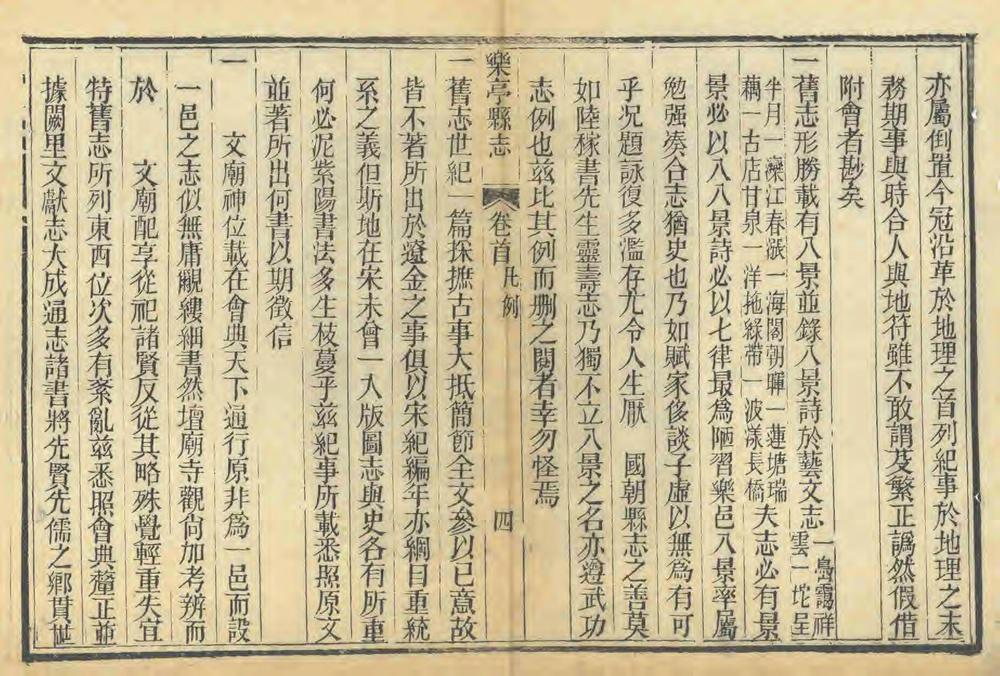 亦屬倒置今冠沿革於地理之首列紀事於地理之末
務期事與時合人與地符雖不敢謂芟繁正譌然假借
附會者尠矣
一舊志形勝載有八景並錄八景詩於藝文志一島靄祥雲一坨呈
半月一灤江春漲一海閣朝暉一蓮塘瑞藕一古店甘泉一洋拖綠帶一波漾長橋夫志必有景
景必以八八景詩必以七律最爲陋習樂邑八景率屬
勉强湊合志猶史也乃如賦家侈談子虛以無爲有可
乎况題詠復多濫存尤令人生厭　國朝縣志之善莫
如陸稼書先生靈壽志乃獨不立八景之名亦遵武功
志例也兹比其例而删之閱者幸勿怪焉
樂亭縣志　卷首　凡例　四
一舊志世紀一篇採摭古事大抵簡節全文參以已意故
皆不著所出於遼金之事俱以宋紀編年亦綱目重統
系之義但斯地在宋未曾一入版圖志與史各有所重
何必泥紫陽書法多生枝蔓乎兹紀事所載悉照原文
並著所出何書以期徵信
一　文廟神位載在會典天下通行原非爲一邑而設
一邑之志似無庸覼縷細書然壇廟寺觀尙加考辨而
於　文廟配享從祀諸賢反從其略殊覺輕重失宜
特舊志所列東西位次多有紊亂兹悉照會典釐正並
據闕里文獻志大成通志諸書將先賢先儒之鄉貫世